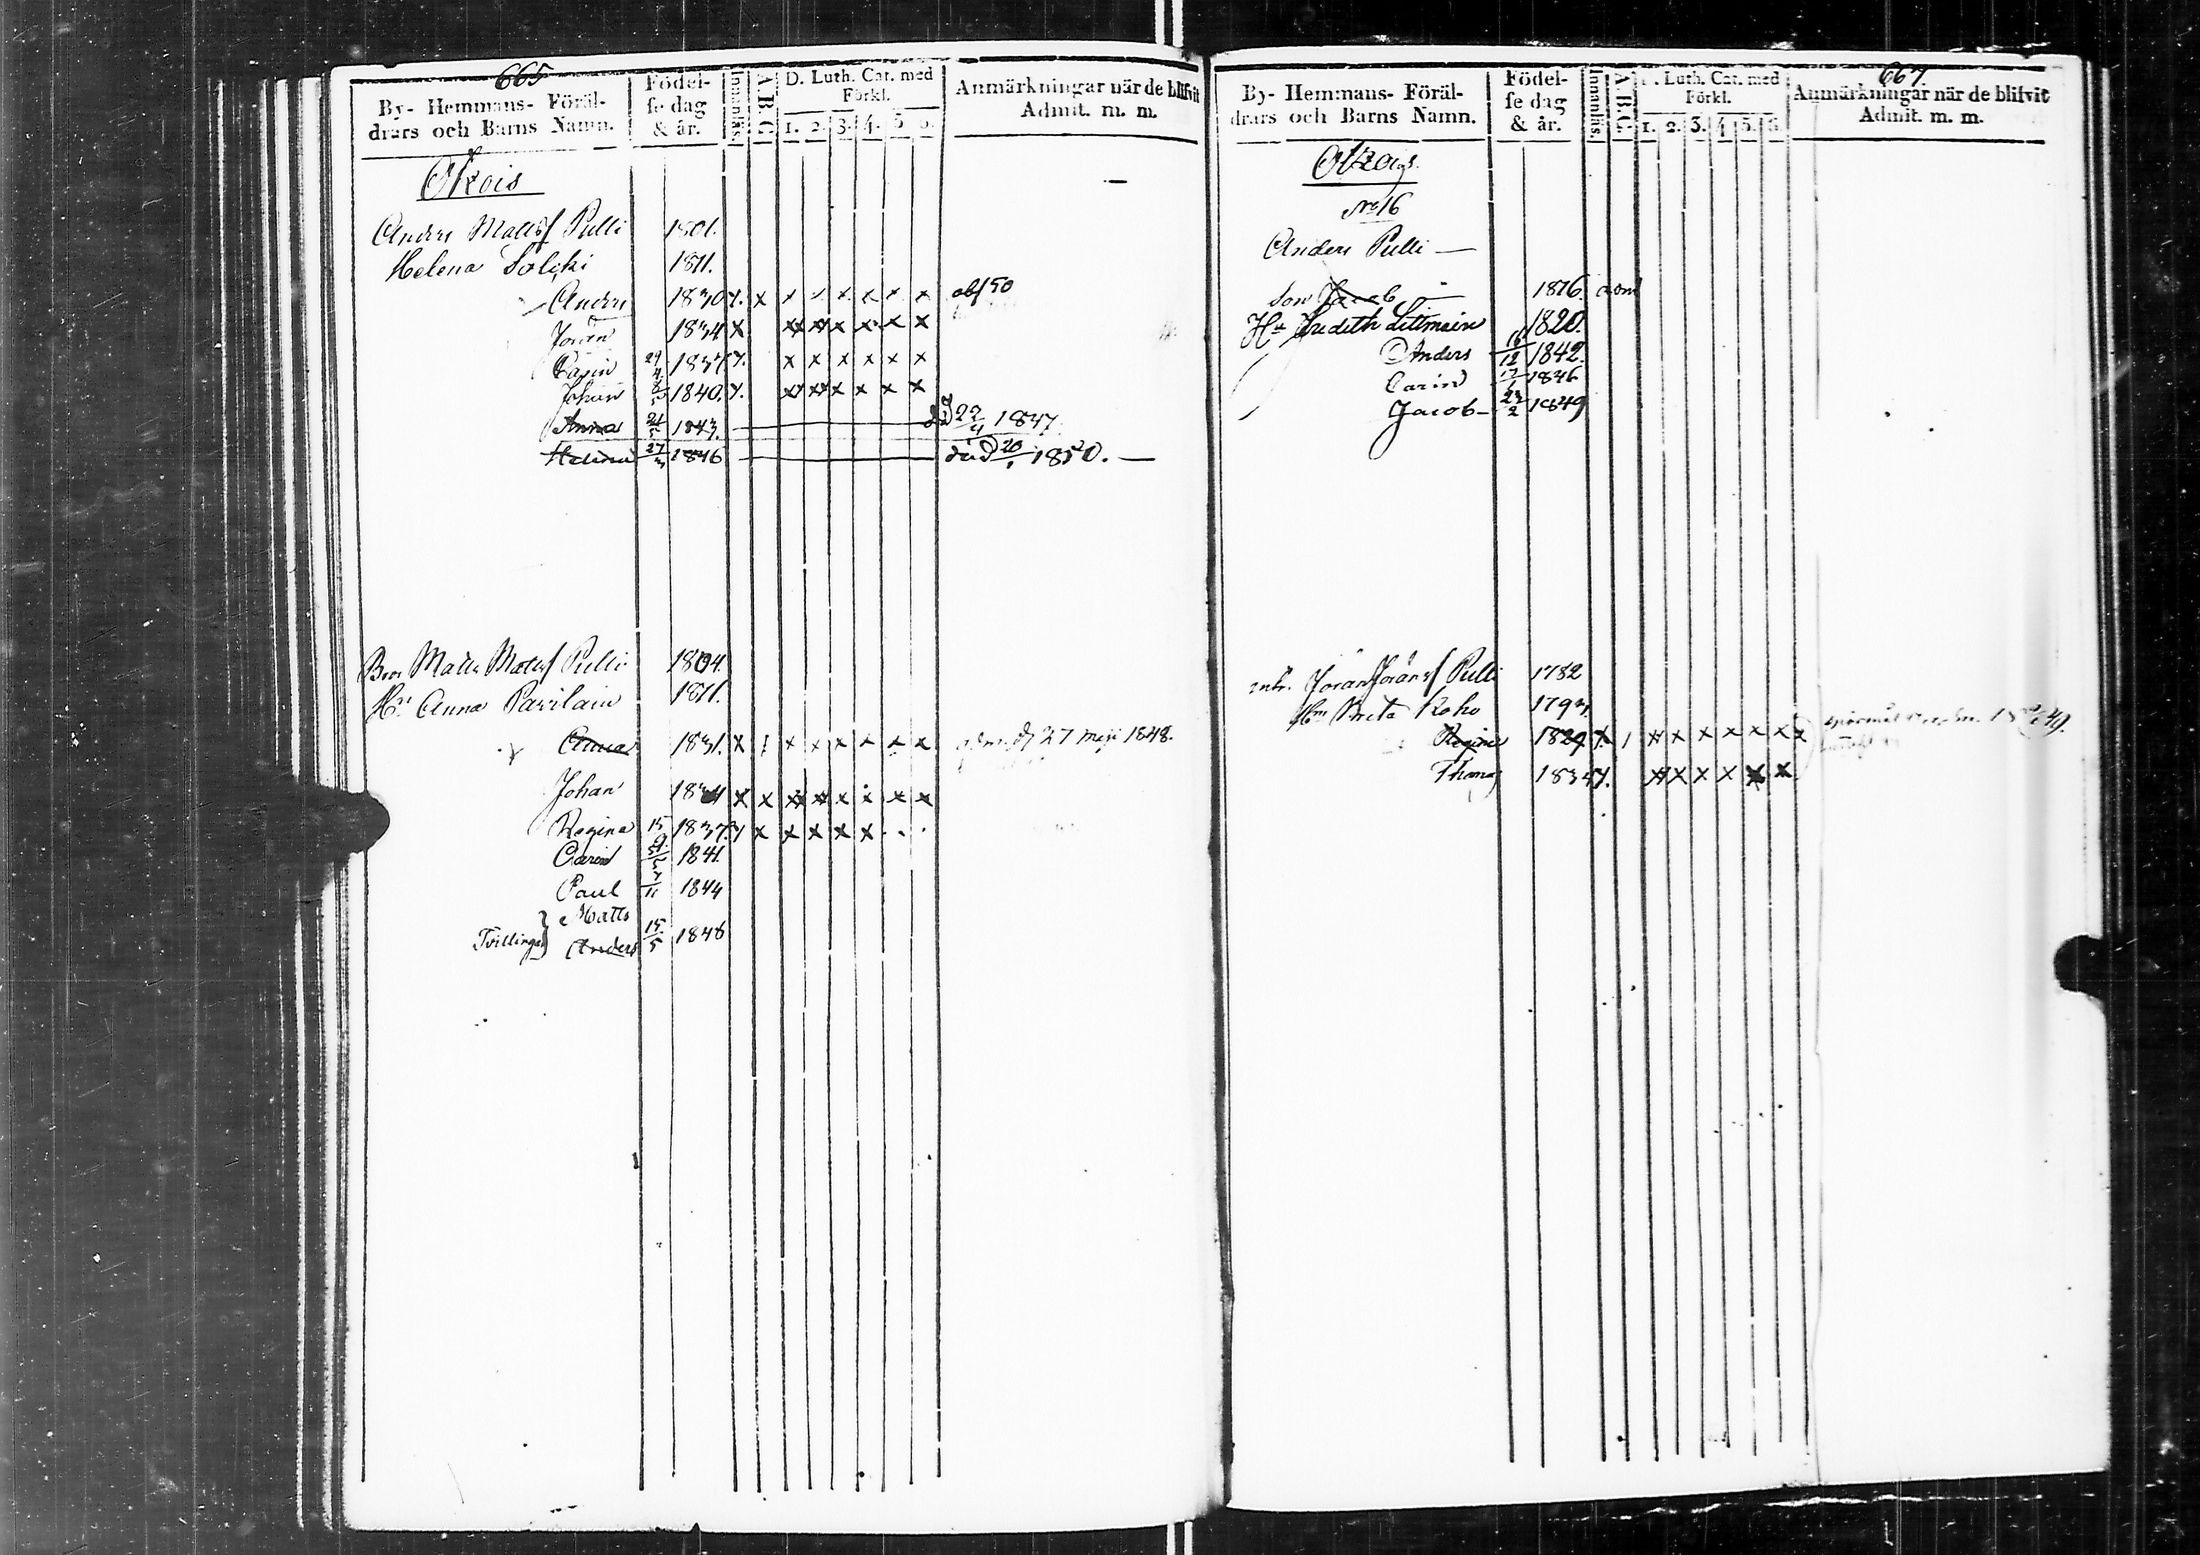 665
By- Hemmans- Föräl-
drars och Barns Namn.
Födel-
se dag
& år.
Innanläs.
A.B.C.
D. Luth. Cat. med
Förkl.
1. 2. 3. 4. 5. 6.
Anmärkningar när de blifvit
Admit. m. m.
Anders Matss Pulli 1801.
Helena 1811.
Anders 1830 x x x x x x x x
Jöran 1834 x x x x x x x
Carin 1837 x x x x x x
Johan 1840. x x x x x x
Anna 21/5 1843. 22/4 1847
Helena 27/3 1846 död 20/1 1850. —
Bror Matts Matss Pulli 1804
Hu Anna Parilain 1811.
Anna 1831. x x x x x x x 27 Maji 1848.
Johan x x x x x x x x
Regina 1837. x x x x x x
Carin 1841.
Paul 1844
Matts
Tvillingar } Anders 15/5 1846
667
By- Hemmans- Föräl-
drars och Barns Namn.
Födel-
se dag
& år.
Innanläs.
A.B.C.
D. Luth. Cat. med
Förkl.
1. 2. 3. 4. 5. 6.
Anmärkningar när de blifvit
Admit. m. m.
No 16
Anders Pulli —
Son Jacob — 1816.
Hu Judith 1820.
Anders 16/12 1842.
Carin 17/1 1846
Jacob — 23/2 1849
Jöran Jöranss Pulli 1782
Hu Brita Koho 1793.
Regina 1829 x x x x x x x
Thomas 1834 x x x x x x